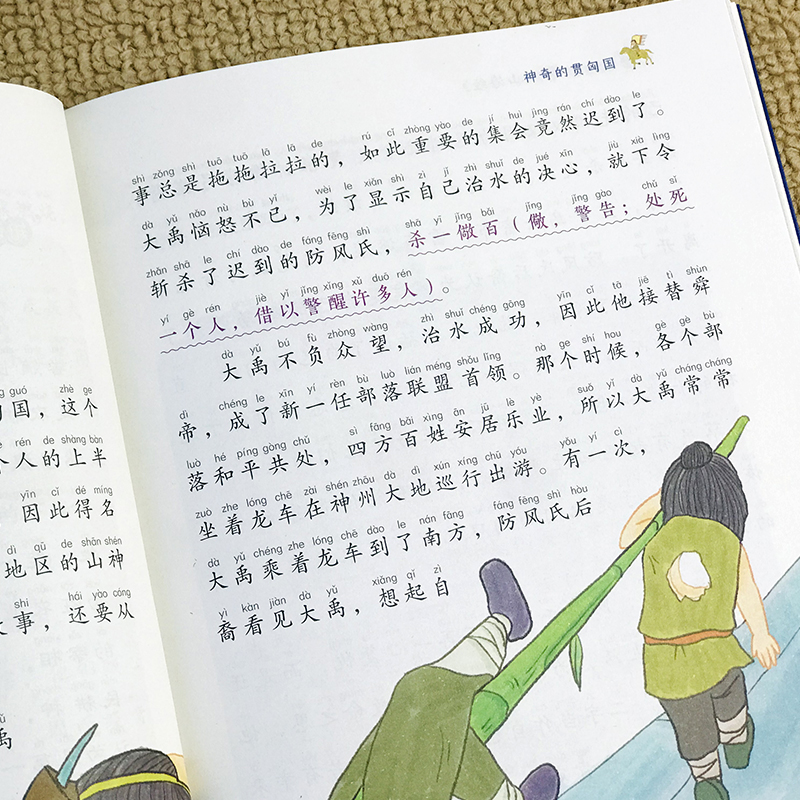 神奇的贯匈国
shì zǒng shì tuō tuō lā lā de rú cǐ zhòng yào de jí huì jìng rán chí dào le
事总是拖拖拉拉的，如此重要的集会竟然迟到了。
dà yǔ nǎo nù bù yǐ wèi le xiǎn shì zì jǐ zhì shuǐ de jué xīn jiù xià lìng
大禹恼怒不已，为了显示自己治水的决心，就下令
zhǎn shā le chí dào de fáng fēng shì shā yī jǐng bǎi jǐng jǐng gào chǔ sǐ
斩杀了迟到的防风氏，杀一儆百（儆，警告；处死
yí gè rén jiè yǐ jǐng xǐng xǔ duō rén
一个人，借以警醒许多人）。
dà yǔ bú fù zhòng wàng zhì shuǐ chéng gōng yīn cǐ tā jiē tì shùn
大禹不负众望，治水成功，因此他接替舜
dì chéng le xīn yí rèn bù luò lián méng shǒu lǐng nà ge shí hou gè gè bù
帝，成了新一任部落联盟首领。那个时候，各个部
luò hé píng gòng chǔ sì fāng bǎi xìng ān jū lè yè suǒ yǐ dà yǔ cháng cháng
落和平共处，四方百姓安居乐业，所以大禹常常
zuò zhe lóng chē zài shén zhōu dà dì xún xíng chū yóu yǒu yí cì
坐着龙车在神州大地巡行出游。有一次，
dà yǔ chéng zhe lóng chē dào le nán fāng fáng fēng shì hòu
大禹乘着龙车到了南方，防风氏后
yì kàn jiàn dà yǔ xiǎng qǐ zì
裔看见大禹，想起自
guó zhè ge
国，这个
rén de shàng bàn
个人的上半
yīn cǐ dé míng
因此得名
dì qū de shān shén
地区的山神
shì hái yào cóng
事，还要从
禹